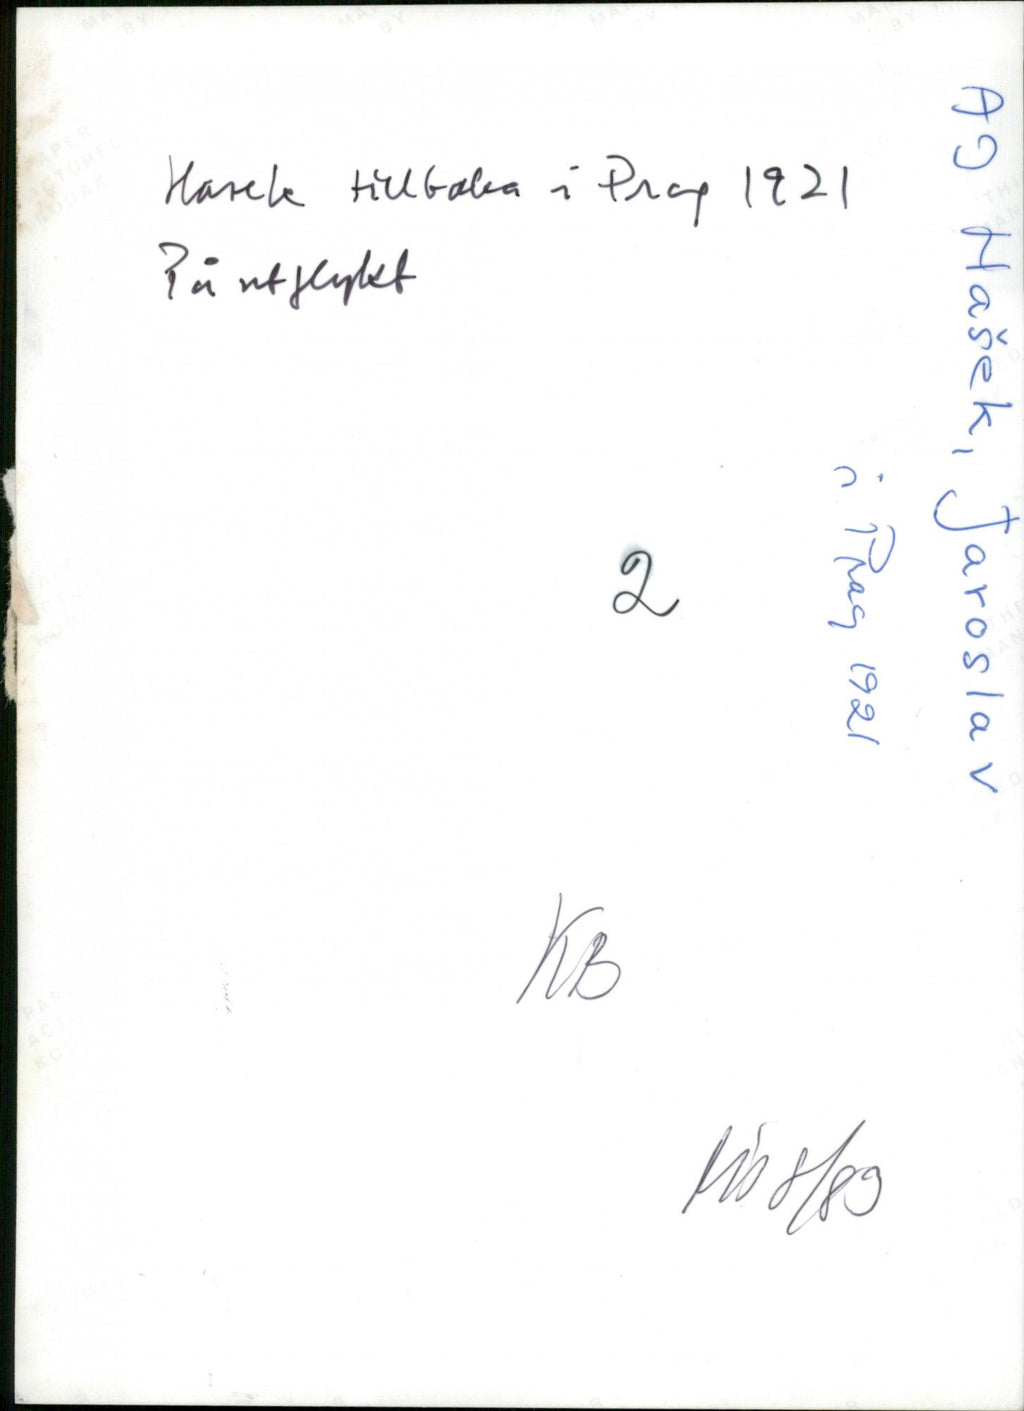 Hasek tillbaka i Prag 1921
På utflykt
AJ Hašek, Jaroslav
i Prag 1921
2
KB
8/89